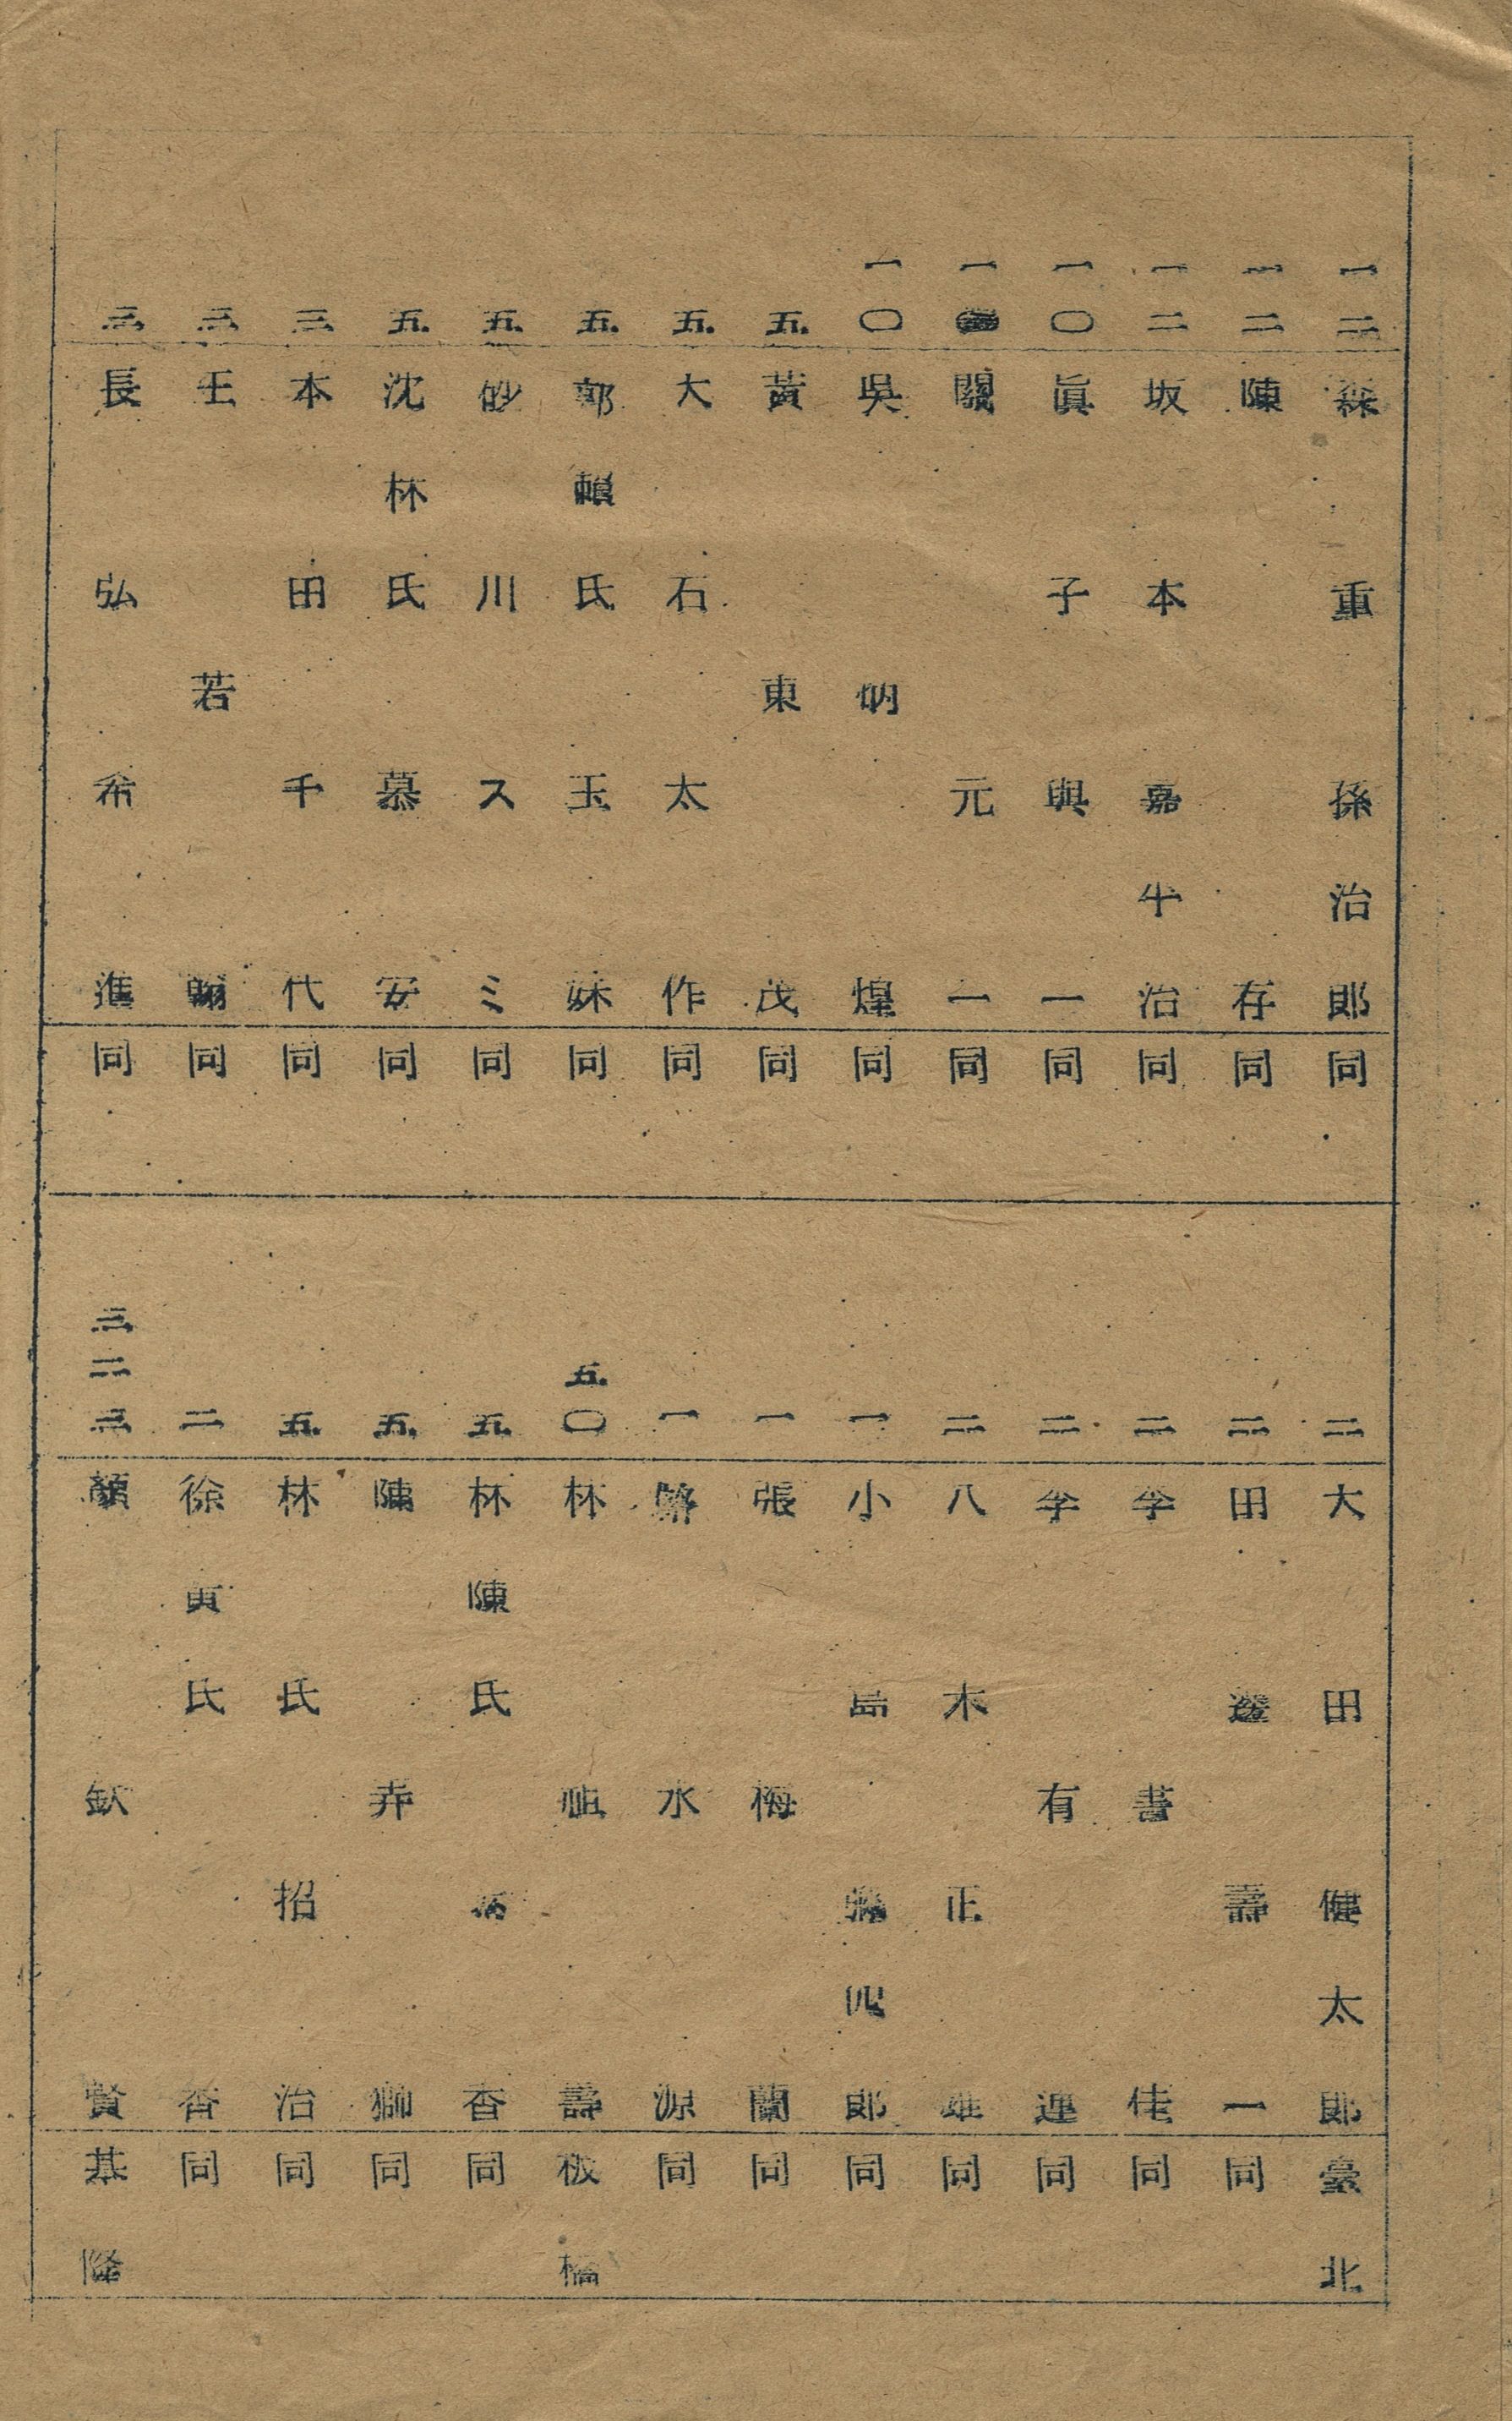 一二 森重孫治郎 同
一二 陳存 同
一二 坂本嘉平治 同
一〇 眞子與一 同
一 關元一 同
一〇 吳炳煌 同
五 黃東茂 同
五 大石太作 同
五 郭賴氏玉妹 同
五 砂川スミ 同
五 沈林氏慕安 同
三 本田千代 同
三 王若翰 同
三 長弘希進 同
二 大田健太郎 臺北
二 田邊壽一 同
二 李書佳 同
二 李有運 同
二 八木正雄 同
一 小島彌四郎 同
一 張梅蘭 同
一 水源 同
五〇 林祖壽 板橋
五 林陳氏香 同
五 陳弄獅 同
五 林氏招治 同
二 徐黃氏香 同
三二三 顏欽賢 基隆